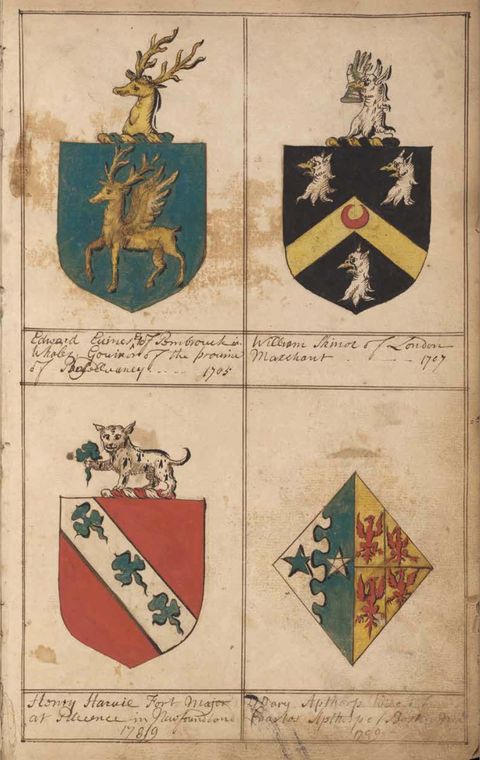 Edward Euines Esqr of Pembrouck in
Whales Gouinor of the prouince
of Pensilvaney ..... 1705
William Skinor of London
Marchant ..... 1707
Henry Harvie Fort Major
at Plicence in Newfoundland
1718/9
Mary Apthorp Wife
Charles Apthorp of Boston